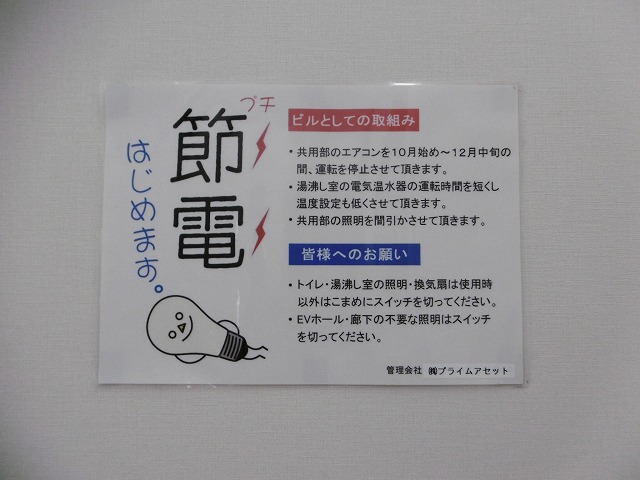 プチ
節電
はじめます。
ビルとしての取組み
・共用部のエアコンを10月始め～12月中旬の
間、運転を停止させて頂きます。
・湯沸し室の電気温水器の運転時間を短くし
温度設定も低くさせて頂きます。
・共用部の照明を間引かさせて頂きます。
皆様へのお願い
・トイレ・湯沸し室の照明・換気扇は使用時
以外はこまめにスイッチを切ってください。
・EVホール・廊下の不要な照明はスイッチ
を切ってください。
管理会社 ㈱プライムアセット